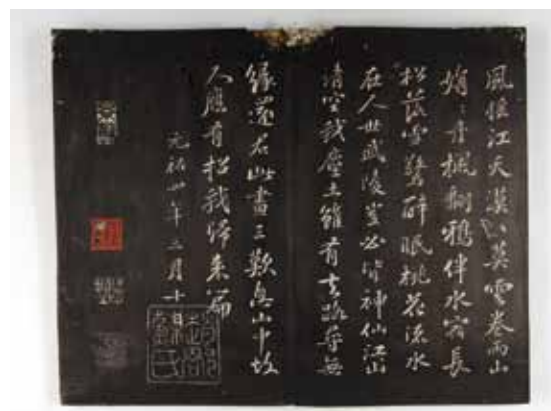 風搖江天漠〻莫雲卷雨山
娟〻丹楓翻鴉伴水宿長
松落雪驚醉眠桃花流水
在人世武陵豈必皆神仙江山
清空我塵土雖有去路尋無
緣還君此畫三歎息山中故
人應有招我歸來篇
元祐四年三月十日